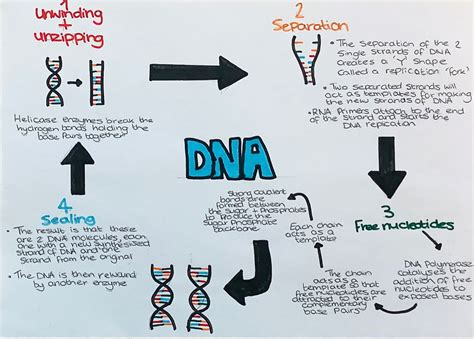 1
Unwinding
+
unzipping
Helicase enzymes break the
hydrogen bonds holding the
base pairs together
2
Separation
• The separation of the 2
single strands of DNA
creates a 'Y' shape
called a replication 'fork'
• Two separated strands will
act as templates for making
the new strands of DNA
• RNA Primers attach to the end
of the strand and starts the
DNA replication
DNA
3
Free nucleotides
DNA Polymerase
catalyses the
addition of free
nucleotides to
exposed bases
The chain
acts as a
template so that
free nucleotides are
attracted to their
complementary
base pairs
Each chain
acts as a
template
Strong covalent
bonds are
formed between
the sugar + phosphates
to produce the
sugar phosphate
backbone
4
Sealing
• The result is that these
are 2 DNA molecules, each
one with a new synthesised
strand of DNA and one
strand from the original
• The DNA is then rewound
by another enzyme